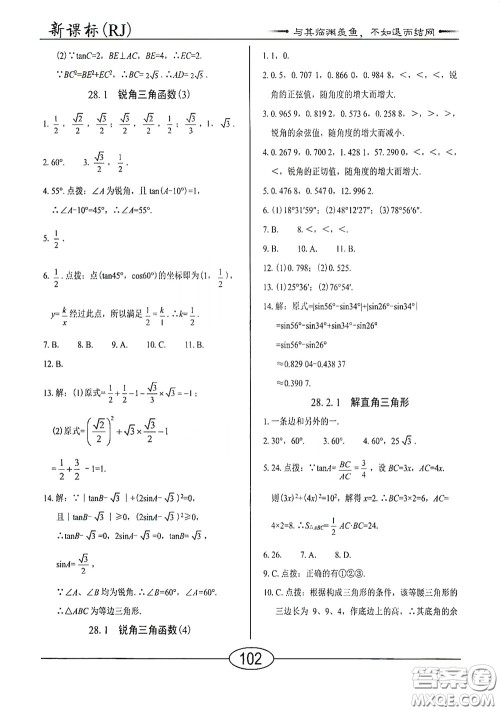 新课标(RJ)
与其临渊羡鱼，不如退而结网
(2)∵tanC=2，BE⊥AC，BE=4，∴EC=2.
∵BC²=BE²+EC²，∴BC=2√5．∴AD=2√5．
28.1 锐角三角函数(3)
1. 1/2，√2/2，√3/2，√3/2，√2/2，1/2，√3/3，1，√3．
2. 60°． 3. √3/2，1/2．
4. 55°．点拨：∠A为锐角，且tan(A-10°)=1，
∴∠A-10°=45°，∴∠A=55°．
5. 1/2．
6. 1/2．点拨：点(tan45°，cos60°)的坐标即为(1，1/2)，
y=k/x经过此点，所以满足1/2=k/1．∴k=1/2．
7. B． 8. B． 9. A． 10. C． 11. C．
12. B．
13. 解：(1)原式=1/2+1/2-1-√3/3×√3=-1．
(2)原式=(√2/2)²+√3×√3/2
=1/2+3/2
-1=1．
14. 解：∵|tanB-√3|+(2sinA-√3)²=0，
且|tanB-√3|≥0，(2sinA-√3)²≥0，
∴tanB=√3，sinA=√3/2．
∵∠A、∠B均为锐角．∴∠B=60°，∠A=60°，
∴△ABC为等边三角形．
28.1 锐角三角函数(4)
1. (1)A (2)B．
2. 0.5，0.707 1，0.866 0，0.984 8，＜，＜，＜，锐
角的正弦值，随角度的增大而增大．
3. 0.965 9，0.819 2，0.573 6，0.258 8，＞，＞，＞，
锐角的余弦值，随角度的增大而减小．
4. 0.267 9，0.700 2，1.428 1，57.290 0，＜，＜，
＜，锐角的正切值，随角度的增大而增大．
5. 0.476 8，0.547 0，12.996 2．
6. (1)18°31′59″；(2)48°30′27″；(3)78°56′6″．
7. B． 8. ＜，＜，＜．
9. B． 10. A． 11. B．
12. (1)0.798；(2)0.525．
13. (1)25°36′；(2)76°54′．
14. 解：原式=|sin56°-sin34°|+|sin26°-sin34°|
=sin56°-sin34°+sin34°-sin26°
=sin56°-sin26°
≈0.829 04-0.438 37
≈0.390 7．
28.2.1 解直角三角形
1. 一条边和另外的一．
2. 30°，60°． 3. 60°． 4. 25√3．
5. 24．点拨：∵tanA=BC/AC=3/4，设BC=3x，AC=4x，
则(3x)²+(4x)²=10²，解得x=2．∴BC=3×2=6，AC=
4×2=8．∴S△ABC=1/2AC·BC=24．
6. 26． 7. A． 8. D．
9. C．点拨：正确的有①②③．
10. C．点拨：根据构成三角形的条件，该等腰三角形的
三边长为9、9、4，作底边上的高，∴其底角的余
102
答案圈
MXQE.COM